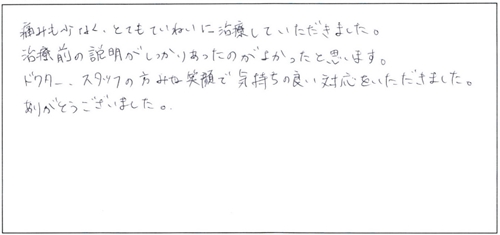 痛みも少なく、とてもていねいに治療していただきました。
治療前の説明がしっかりあったのがよかったと思います。
ドクター、スタッフの方みな笑顔で気持ちの良い対応をいただきました。
ありがとうございました。